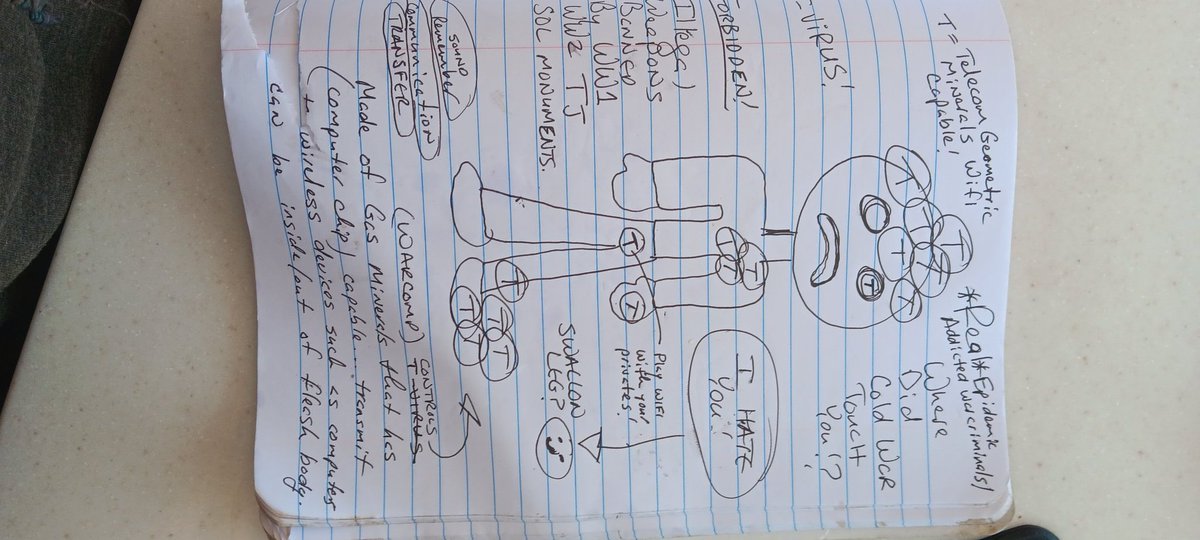 T = Telecom Geometric
Minerals Wifi
Capable!
*Real* Epidemic
Addicted warcriminals/
Where
Did
Cold War
Touch
You!?
T
T
T
T
T
T
T
T
-VIRUS!
FORBIDDEN!
Illegal
Weapons
Banned
By WW1
WW2 TJ
SOL MONUMENTS.
T
T
T
I HATE
You!!
T
T
Play wifi
with your
privates.
SWALLOW
LEG?
T
T
T
T
T
T
SOUND
Remember
Communication
TRANSFER
(WARCOMP) CONTROLS
T-VIRUS
Made of Gas Minerals that has
(computer chip) capable... transmit
to wireless devices such as computers
can be inside/out of flesh body.